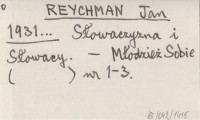 REYCHMAN Jan
1931... Słowaczyzna i
Słowacy. – Młodzież Sobie
( ) nr 1-3.